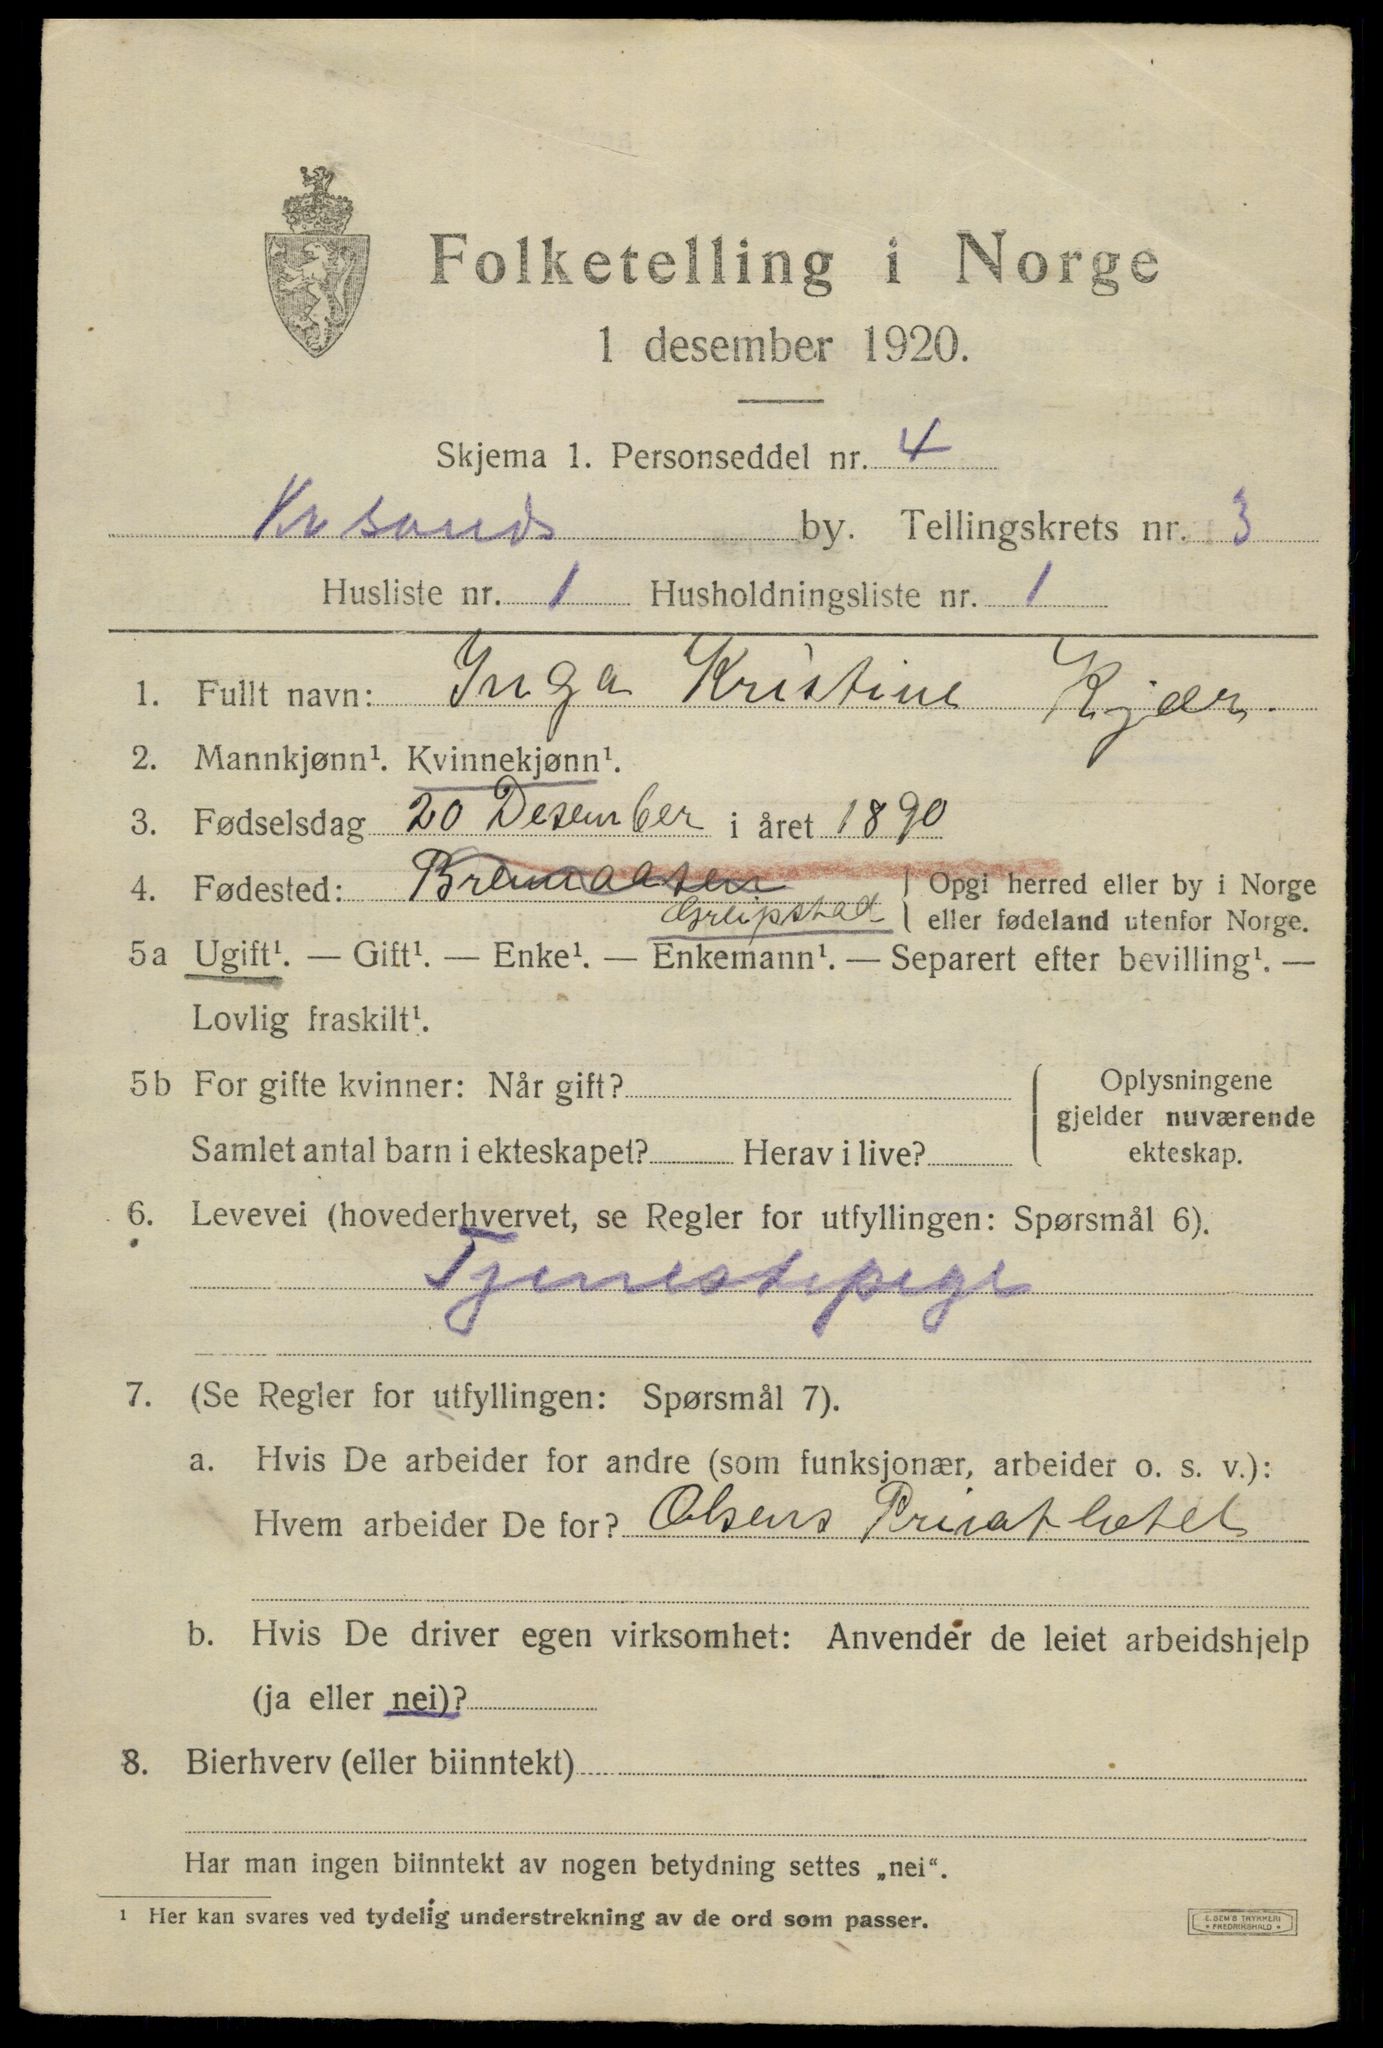 Folketelling i Norge
1 desember 1920.
Skjema 1. Personseddel nr. 4
Krsands by. Tellingskrets nr. 3
Husliste nr. 1 Husholdningsliste nr. 1
1. Fullt navn: Inga Kristine Kjær.
2. Mannkjønn¹. Kvinnekjønn¹.
3. Fødselsdag 20 Desember i året 1890
4. Fødested: { Opgi herred eller by i Norge
Greipstad eller fødeland utenfor Norge.
5a Ugift¹. — Gift¹. — Enke¹. — Enkemann¹. — Separert efter bevilling¹. —
Lovlig fraskilt¹.
5b For gifte kvinner: Når gift? { Oplysningene
gjelder nuværende
Samlet antal barn i ekteskapet? Herav i live? ekteskap.
6. Levevei (hovederhvervet, se Regler for utfyllingen: Spørsmål 6).
Tjenestepige
7. (Se Regler for utfyllingen: Spørsmål 7).
a. Hvis De arbeider for andre (som funksjonær, arbeider o. s. v.):
Hvem arbeider De for? Olsens Privathotel
b. Hvis De driver egen virksomhet: Anvender de leiet arbeidshjelp
(ja eller nei)?
8. Bierhverv (eller biinntekt)
Har man ingen biinntekt av nogen betydning settes „nei“.
¹ Her kan svares ved tydelig understrekning av de ord som passer.
E. SEM'S TRYKKERI
* FREDRIKSHALD *